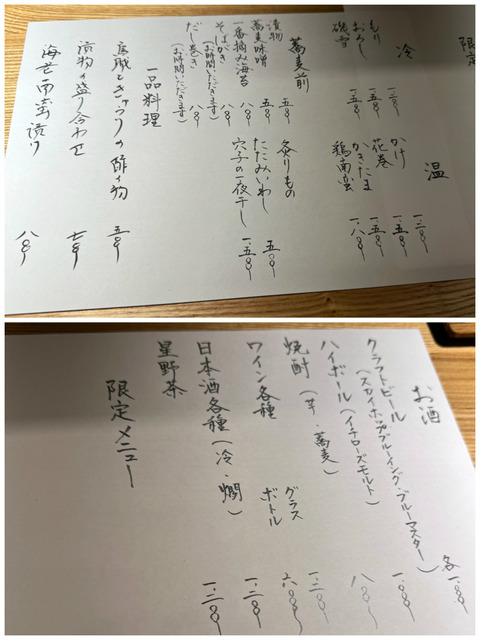 限定
冷
もり 一.三〇〇
おろし 一.五〇〇
磯雪 一.五〇〇
温
かけ 一.三〇〇
花巻 一.五〇〇
かきたま 一.五〇〇
鶏南蛮 一.八〇〇
蕎麦前
漬物 五〇〇
蕎麦味噌 五〇〇
一番摘み海苔 八〇〇
そばがき 八〇〇
(お時間いただきます)
だし巻き 八〇〇
(お時間いただきます)
炙りもの
たたみいわし 五〇〇
穴子の一夜干し 一.五〇〇
一品料理
烏賊ときゅうりの酢の物 五〇〇
漬物の盛り合わせ 七〇〇
海老南蛮漬け 八〇〇
お酒
クラフトビール 各一.〇〇〇
(スカイホップブルーイング・ブルーマスター)
ハイボール(イチローズモルト) 一.〇〇〇
焼酎(芋・蕎麦) 八〇〇
ワイン各種 グラス 一.三〇〇
ボトル 六〇〇〇
日本酒各種(冷・燗) 一.三〇〇
星野茶 一.三〇〇
限定メニュー